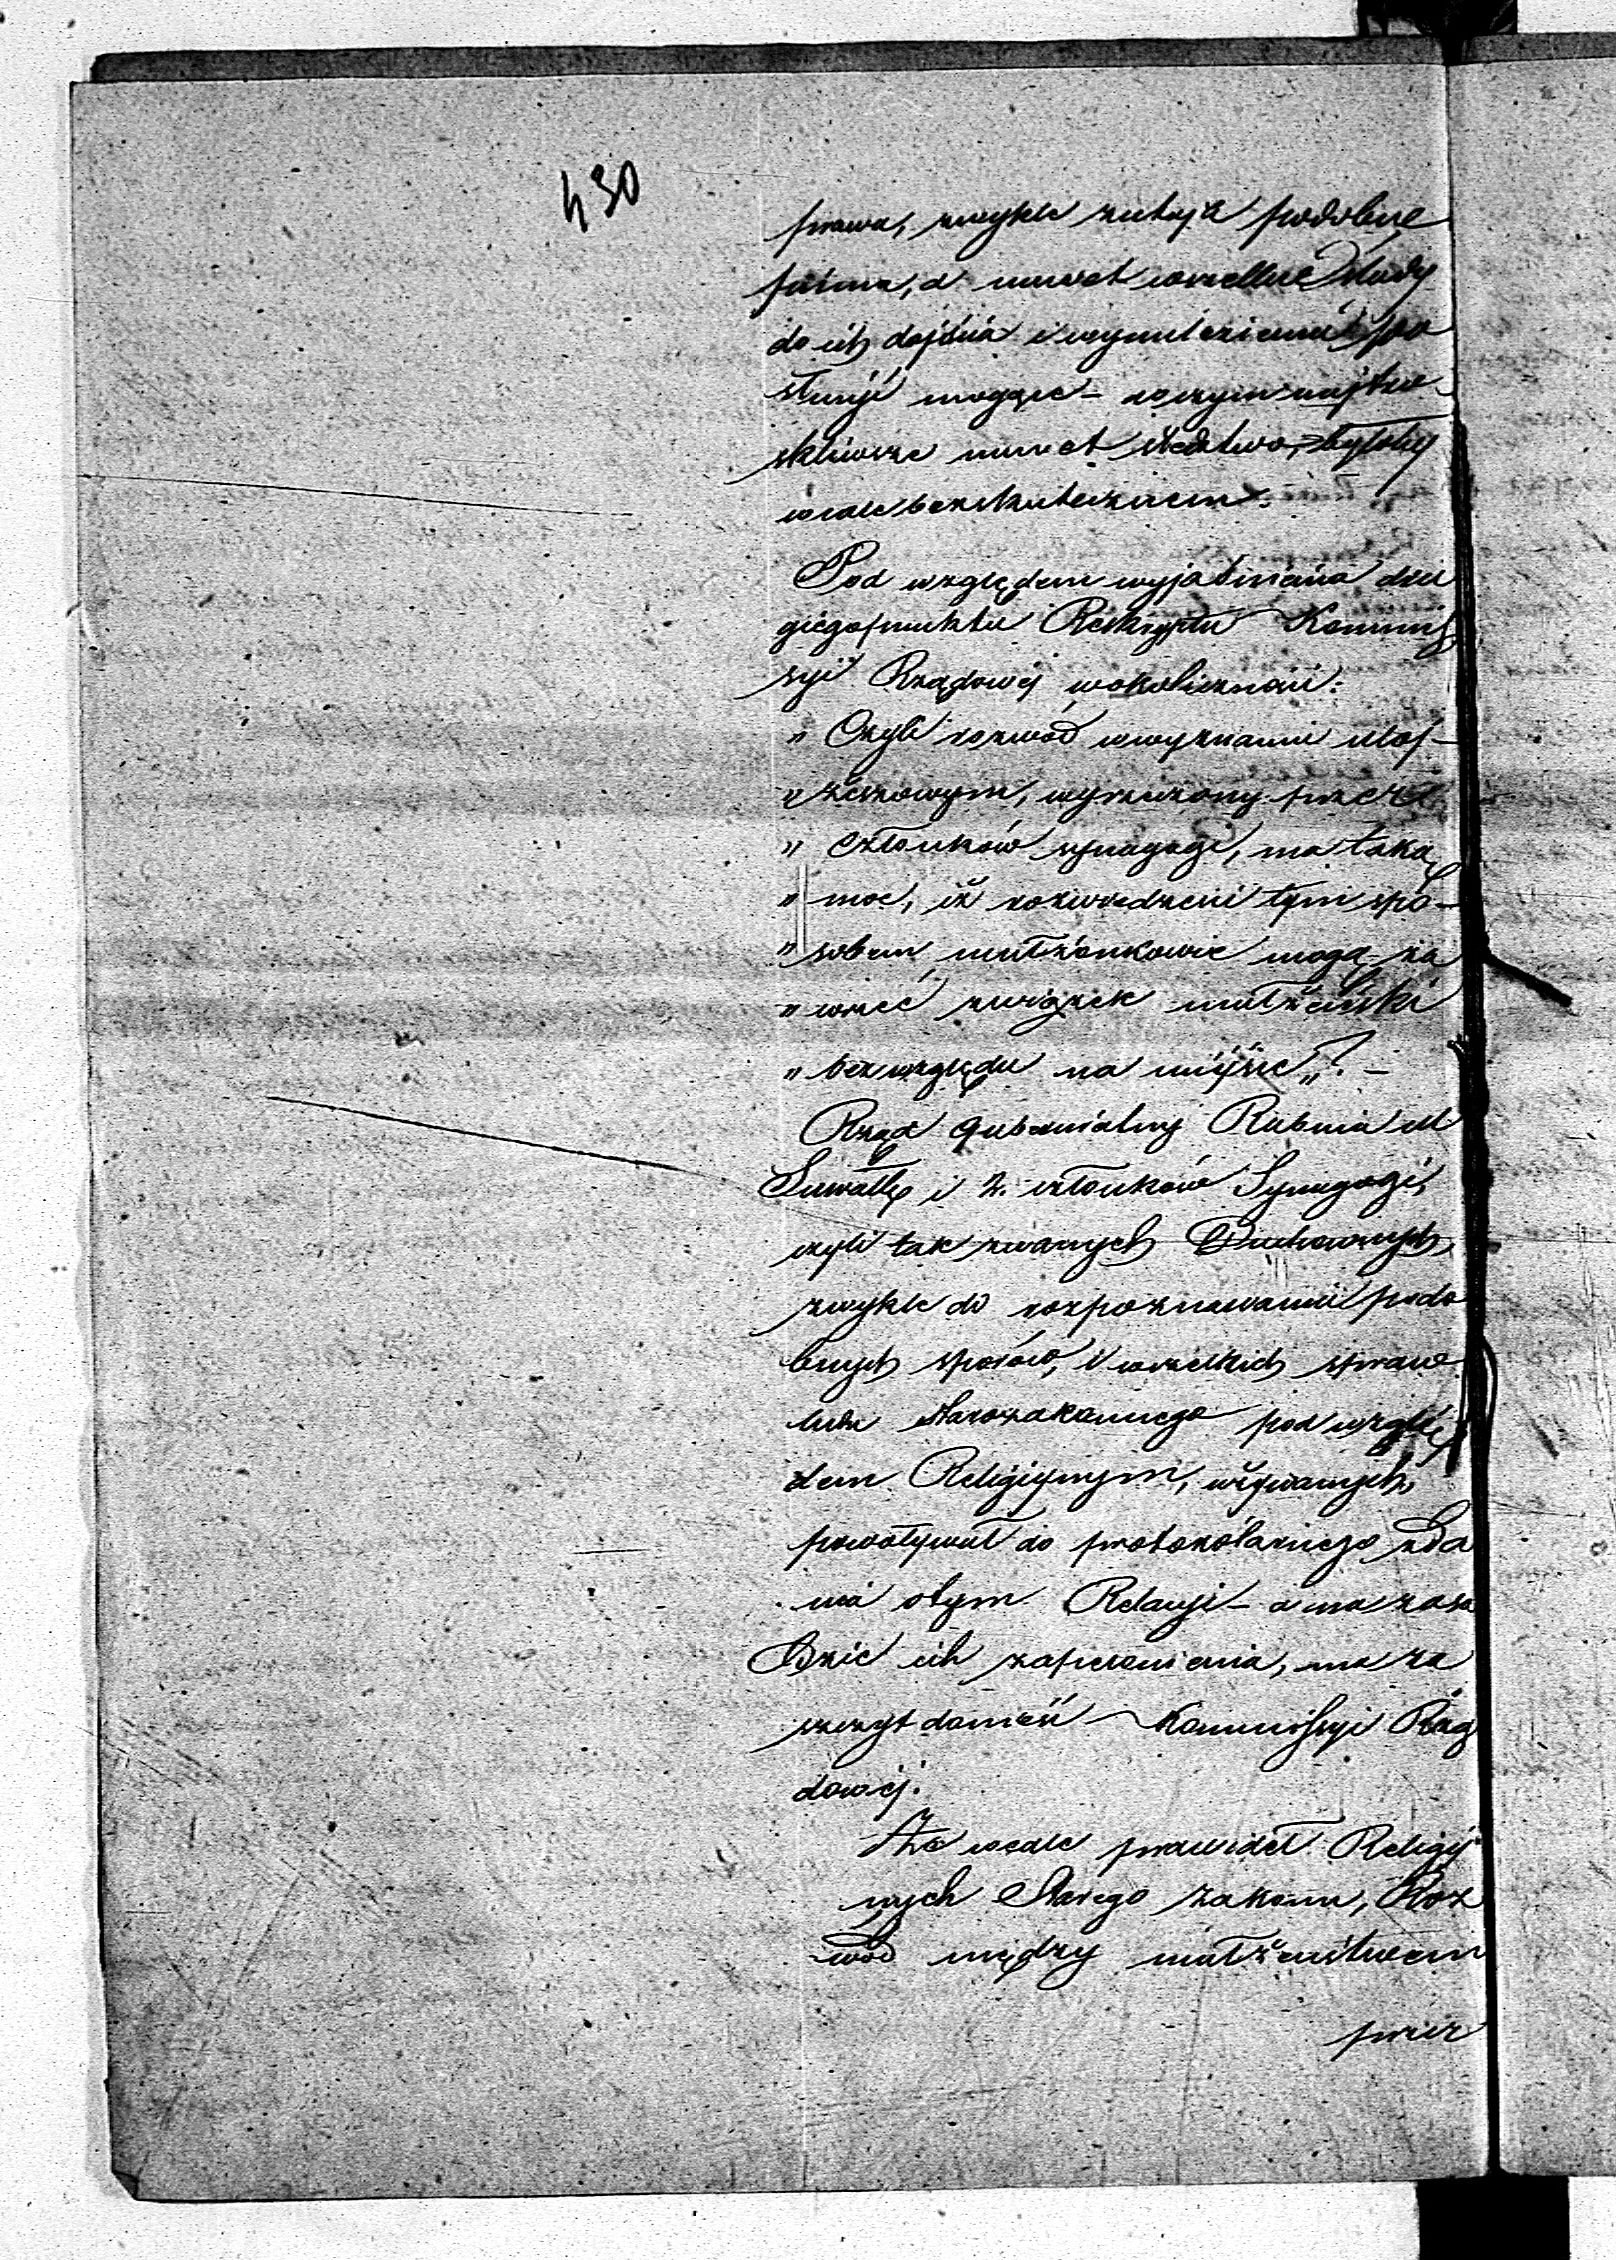 430
prawa, zwykle zataja podobne
pisma, a nawet wszelkie ślady
do ich dojścia i wynalezienia po
służyć mogące – w czym najtro
skliwsze nawet śledztwo, byłoby
wcale bezskutecznem.
Pod względem wyjaśnienia dru
giego punktu Reskryptu Kommis
syi Rządowej w okoliczności:
„ Czyli rozwód w wyznaniu Moj-
„ żeszowym, wyrzeczony przez
„ członków synagogi, ma taką
„ moc, iż rozwiedzeni tym spo-
„ sobem małżonkowie mogą za
„ wrzeć związek małżeński
„ bez względu na miejsce„? –
Rząd Gubernialny Rabina M
Suwałk i 2. członków Synagogi,
czyli tak zwanych Duchownych,
zwykle do rozpoznawania podo
bnych sporów, i wszelkich spraw
ludu Starozakonnego pod wzglę
dem Religijnym, używanych,
powoływał do protokólarnego zda
nia o tym Relacyi – a na zasa
dzie ich zapewnienia, ma za
szczyt donieść Kommissyi Rzą
dowej.
że wedle prawideł Religij
nych Starego zakonu, Roz
wód między małżeństwem
przez